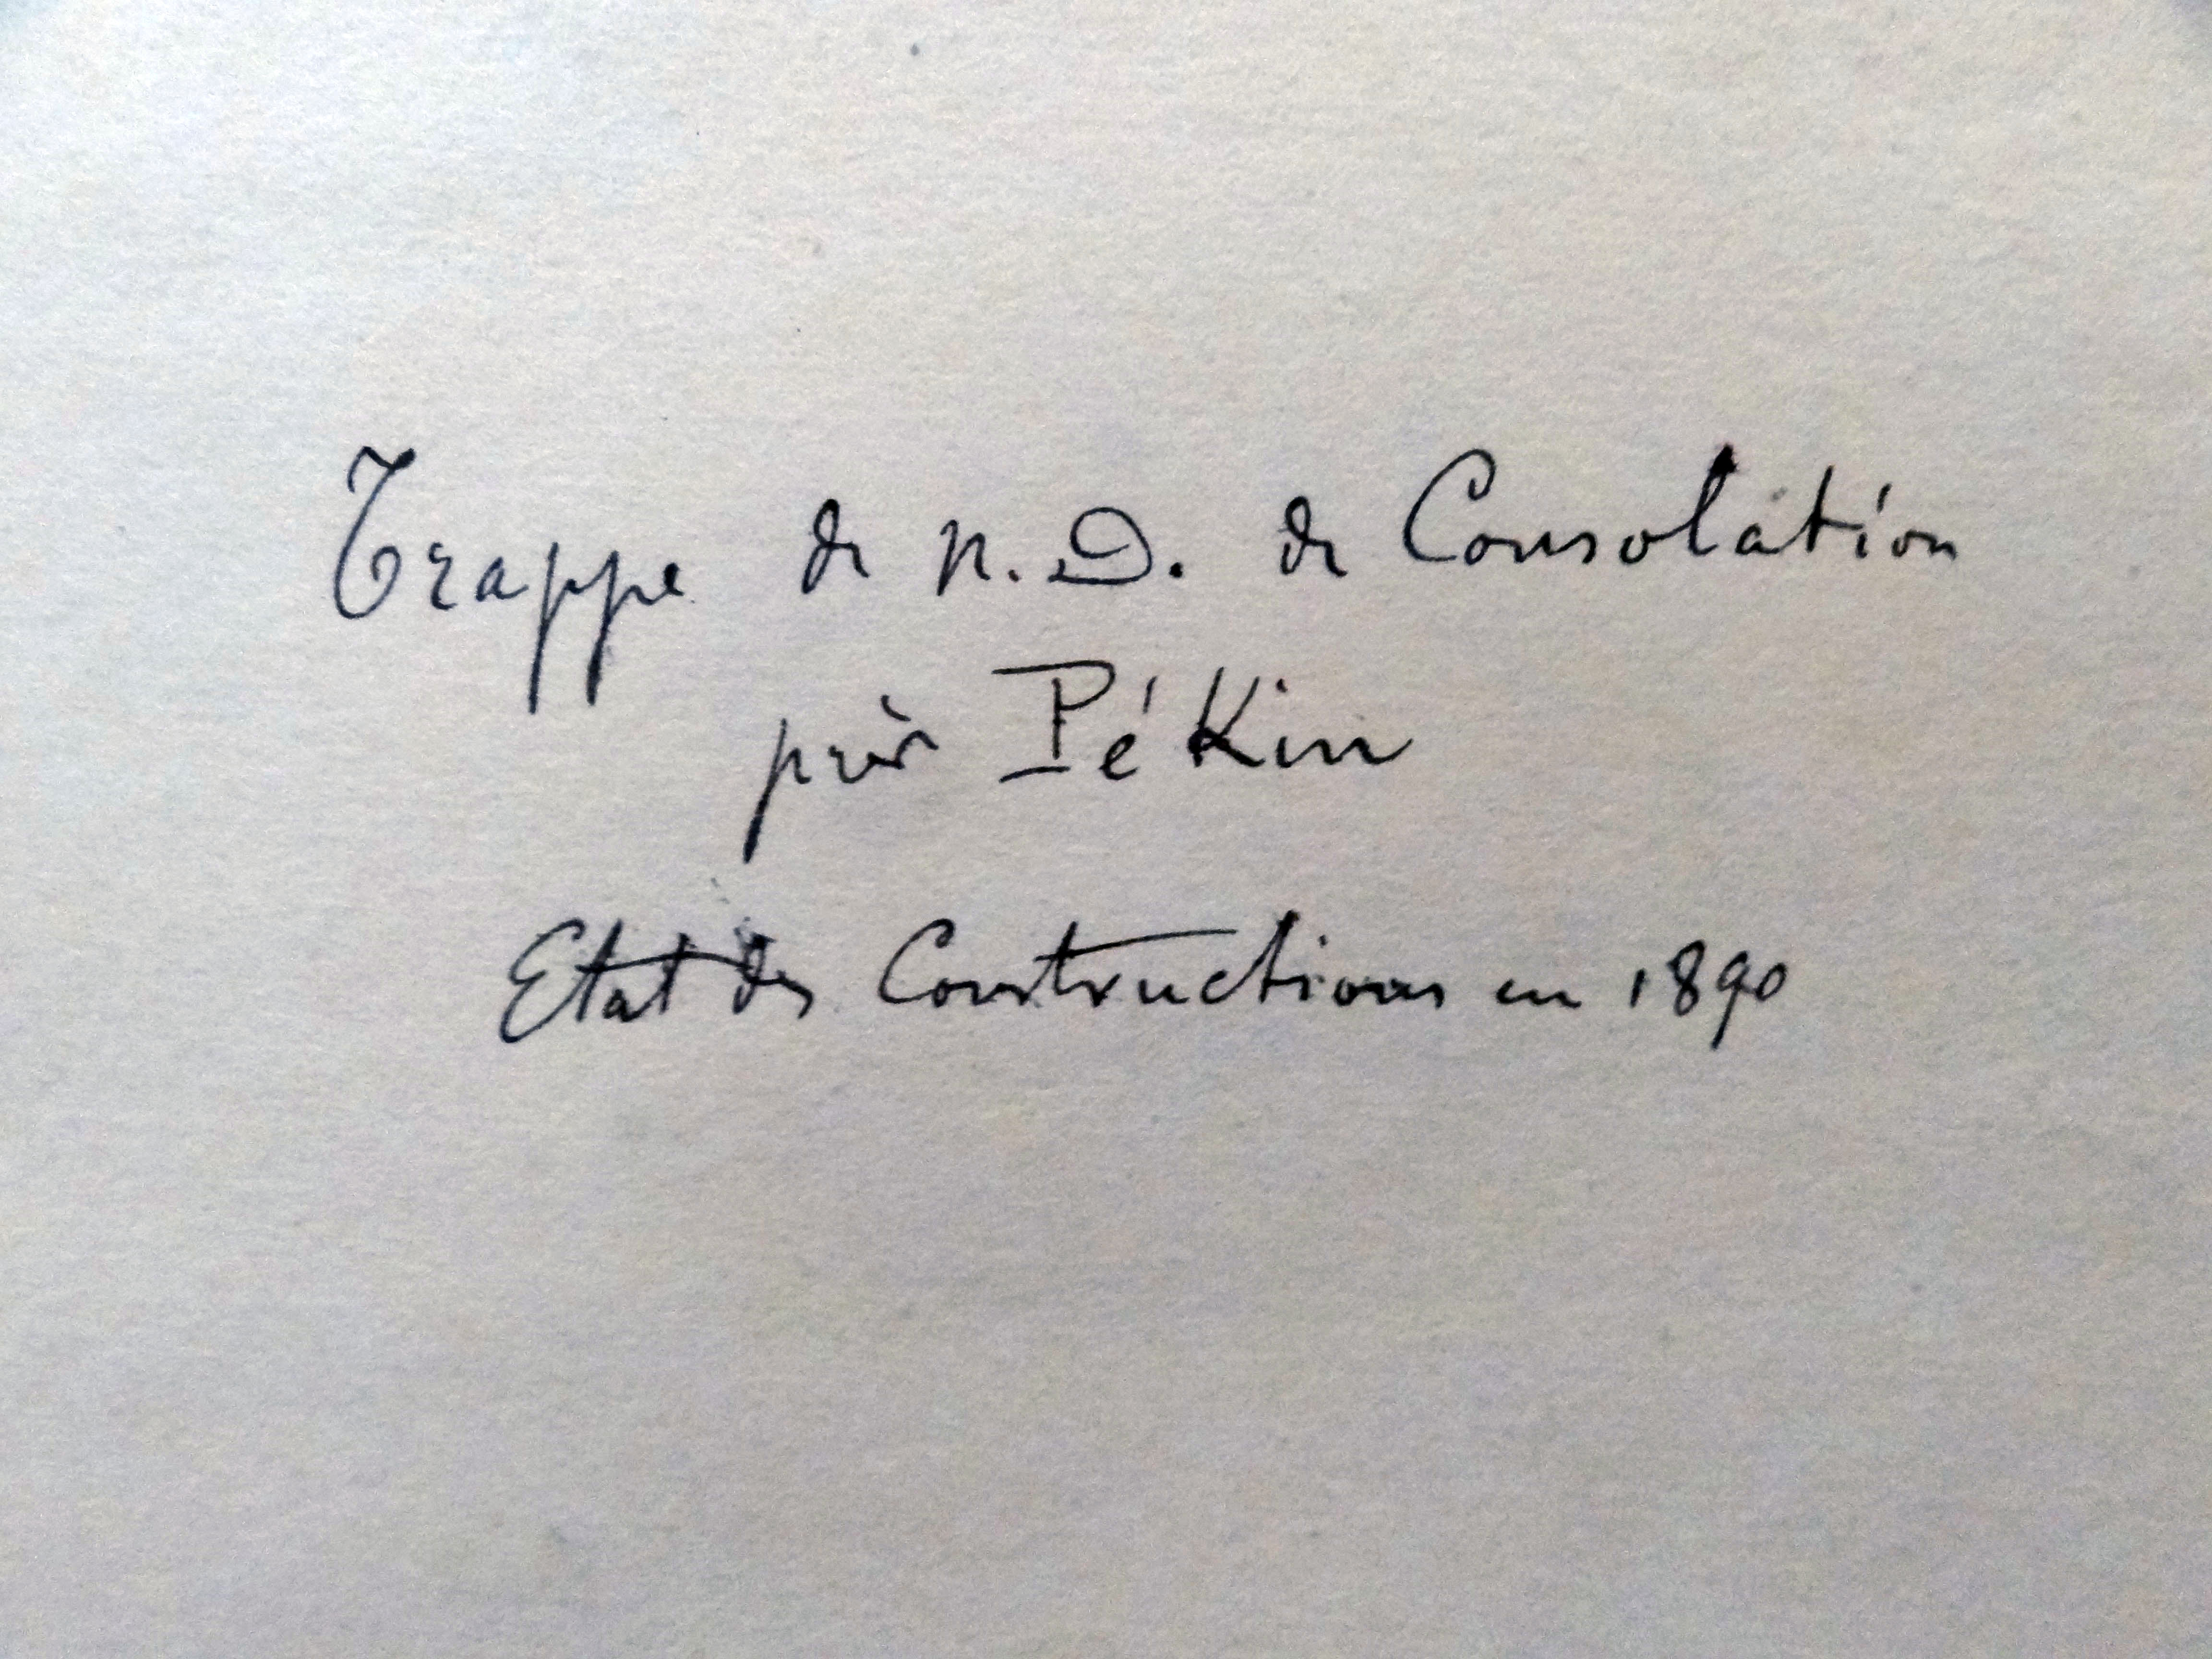 Trappe de N.D. de Consolation
près Pékin
Etat des Constructions en 1890